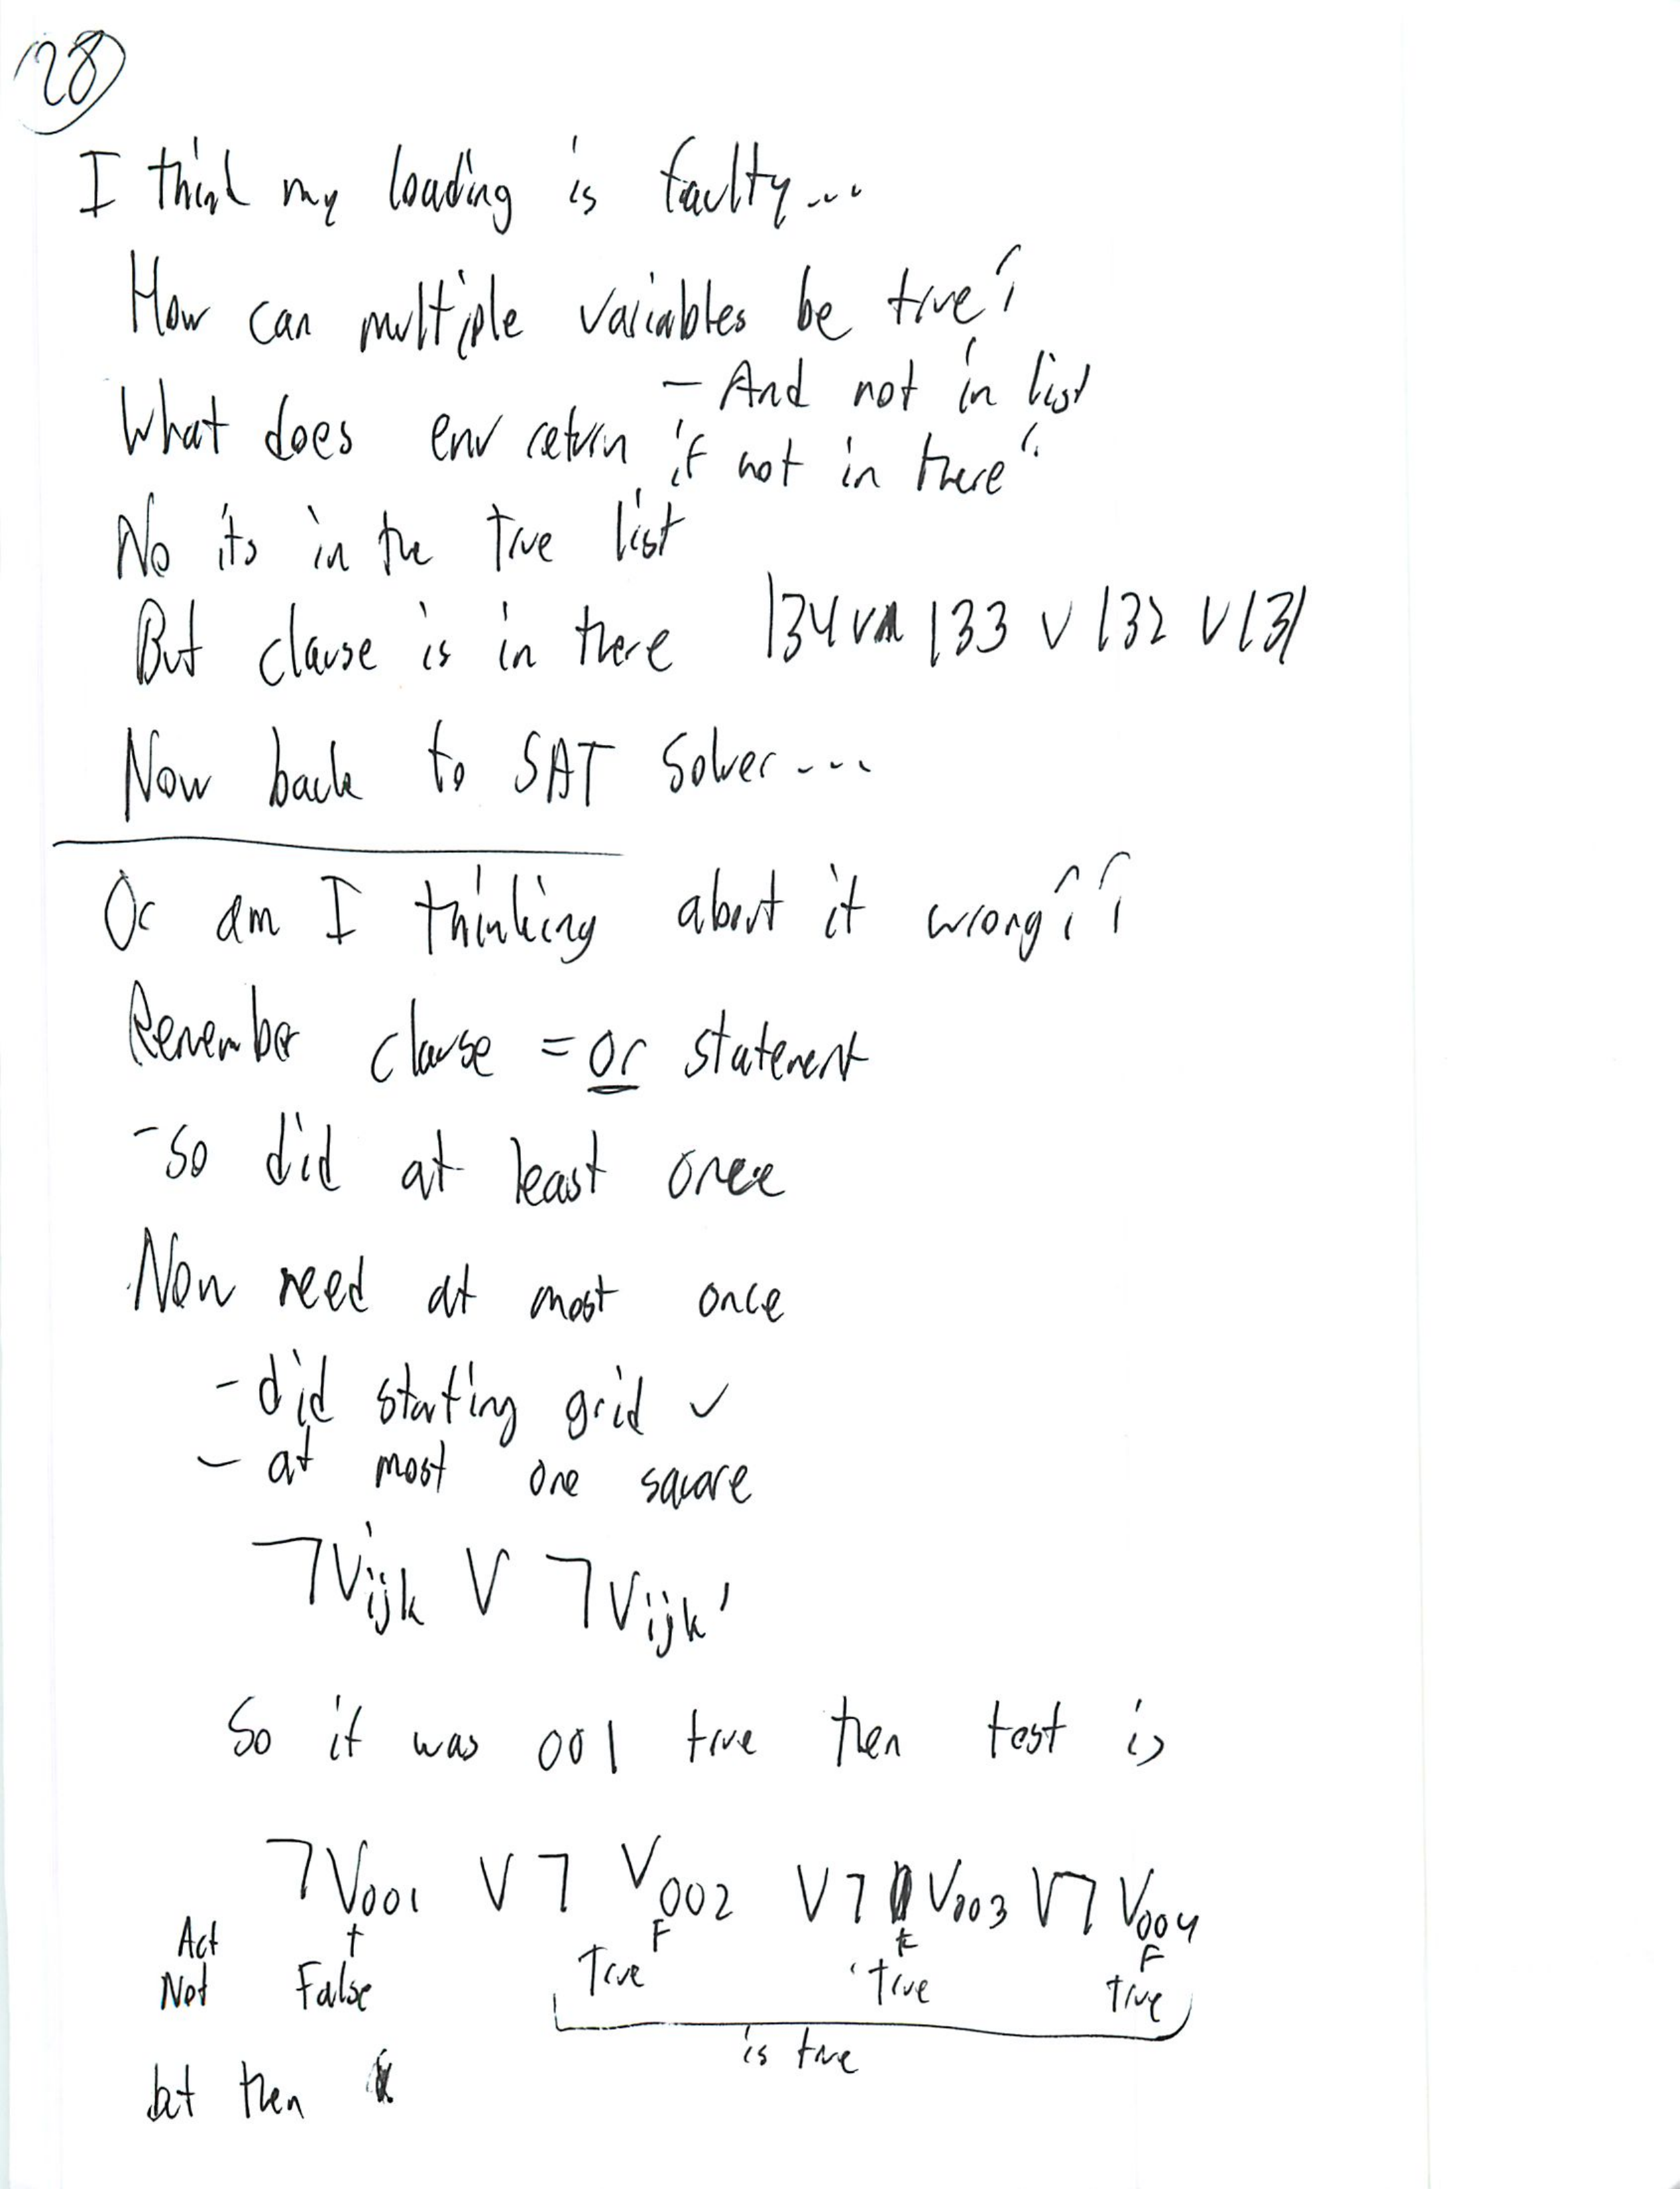 28
I think my loading is faulty...
How can multiple variables be true?
- And not in list
What does env return if not in there?
No its in the true list
But clause is in there 134 V 133 V 132 V 131
Now back to SAT solver...
Or am I thinking about it wrong??
Remember clause = or statement
- so did at least once
Now need at most once
- did starting grid ✓
- at most one square
¬Vijk V ¬Vijk'
So if was 001 true then test is
¬V001 V ¬V002 V ¬V003 V ¬V004
Act t F F F
Not False True True True
is true
but then